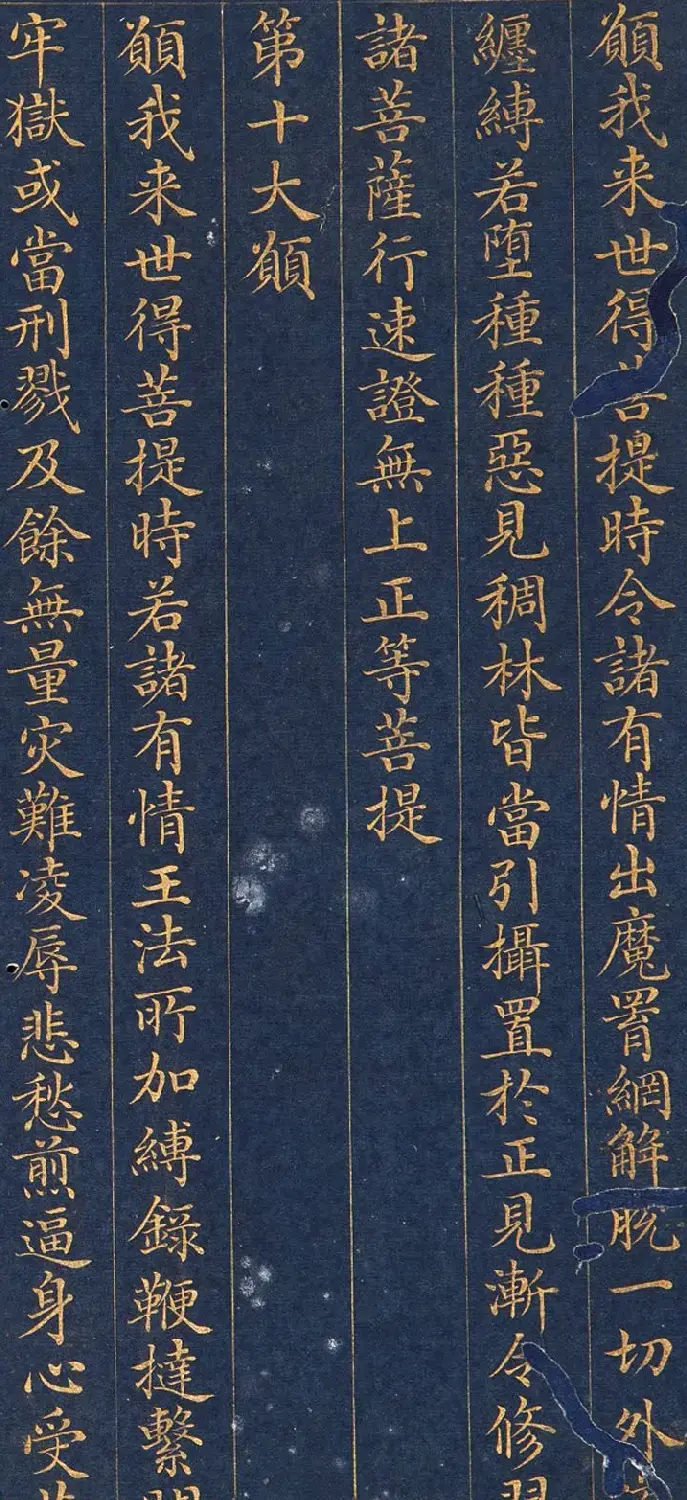 願我来世得菩提時令諸有情出魔罥網解脫一切外
纏縛若堕種種惡見稠林皆當引攝置於正見漸令修習
諸菩薩行速證無上正等菩提
第十大願
願我来世得菩提時若諸有情王法所加縛錄鞭撻繫閇
牢獄或當刑戮及餘無量灾難凌辱悲愁煎逼身心受苦